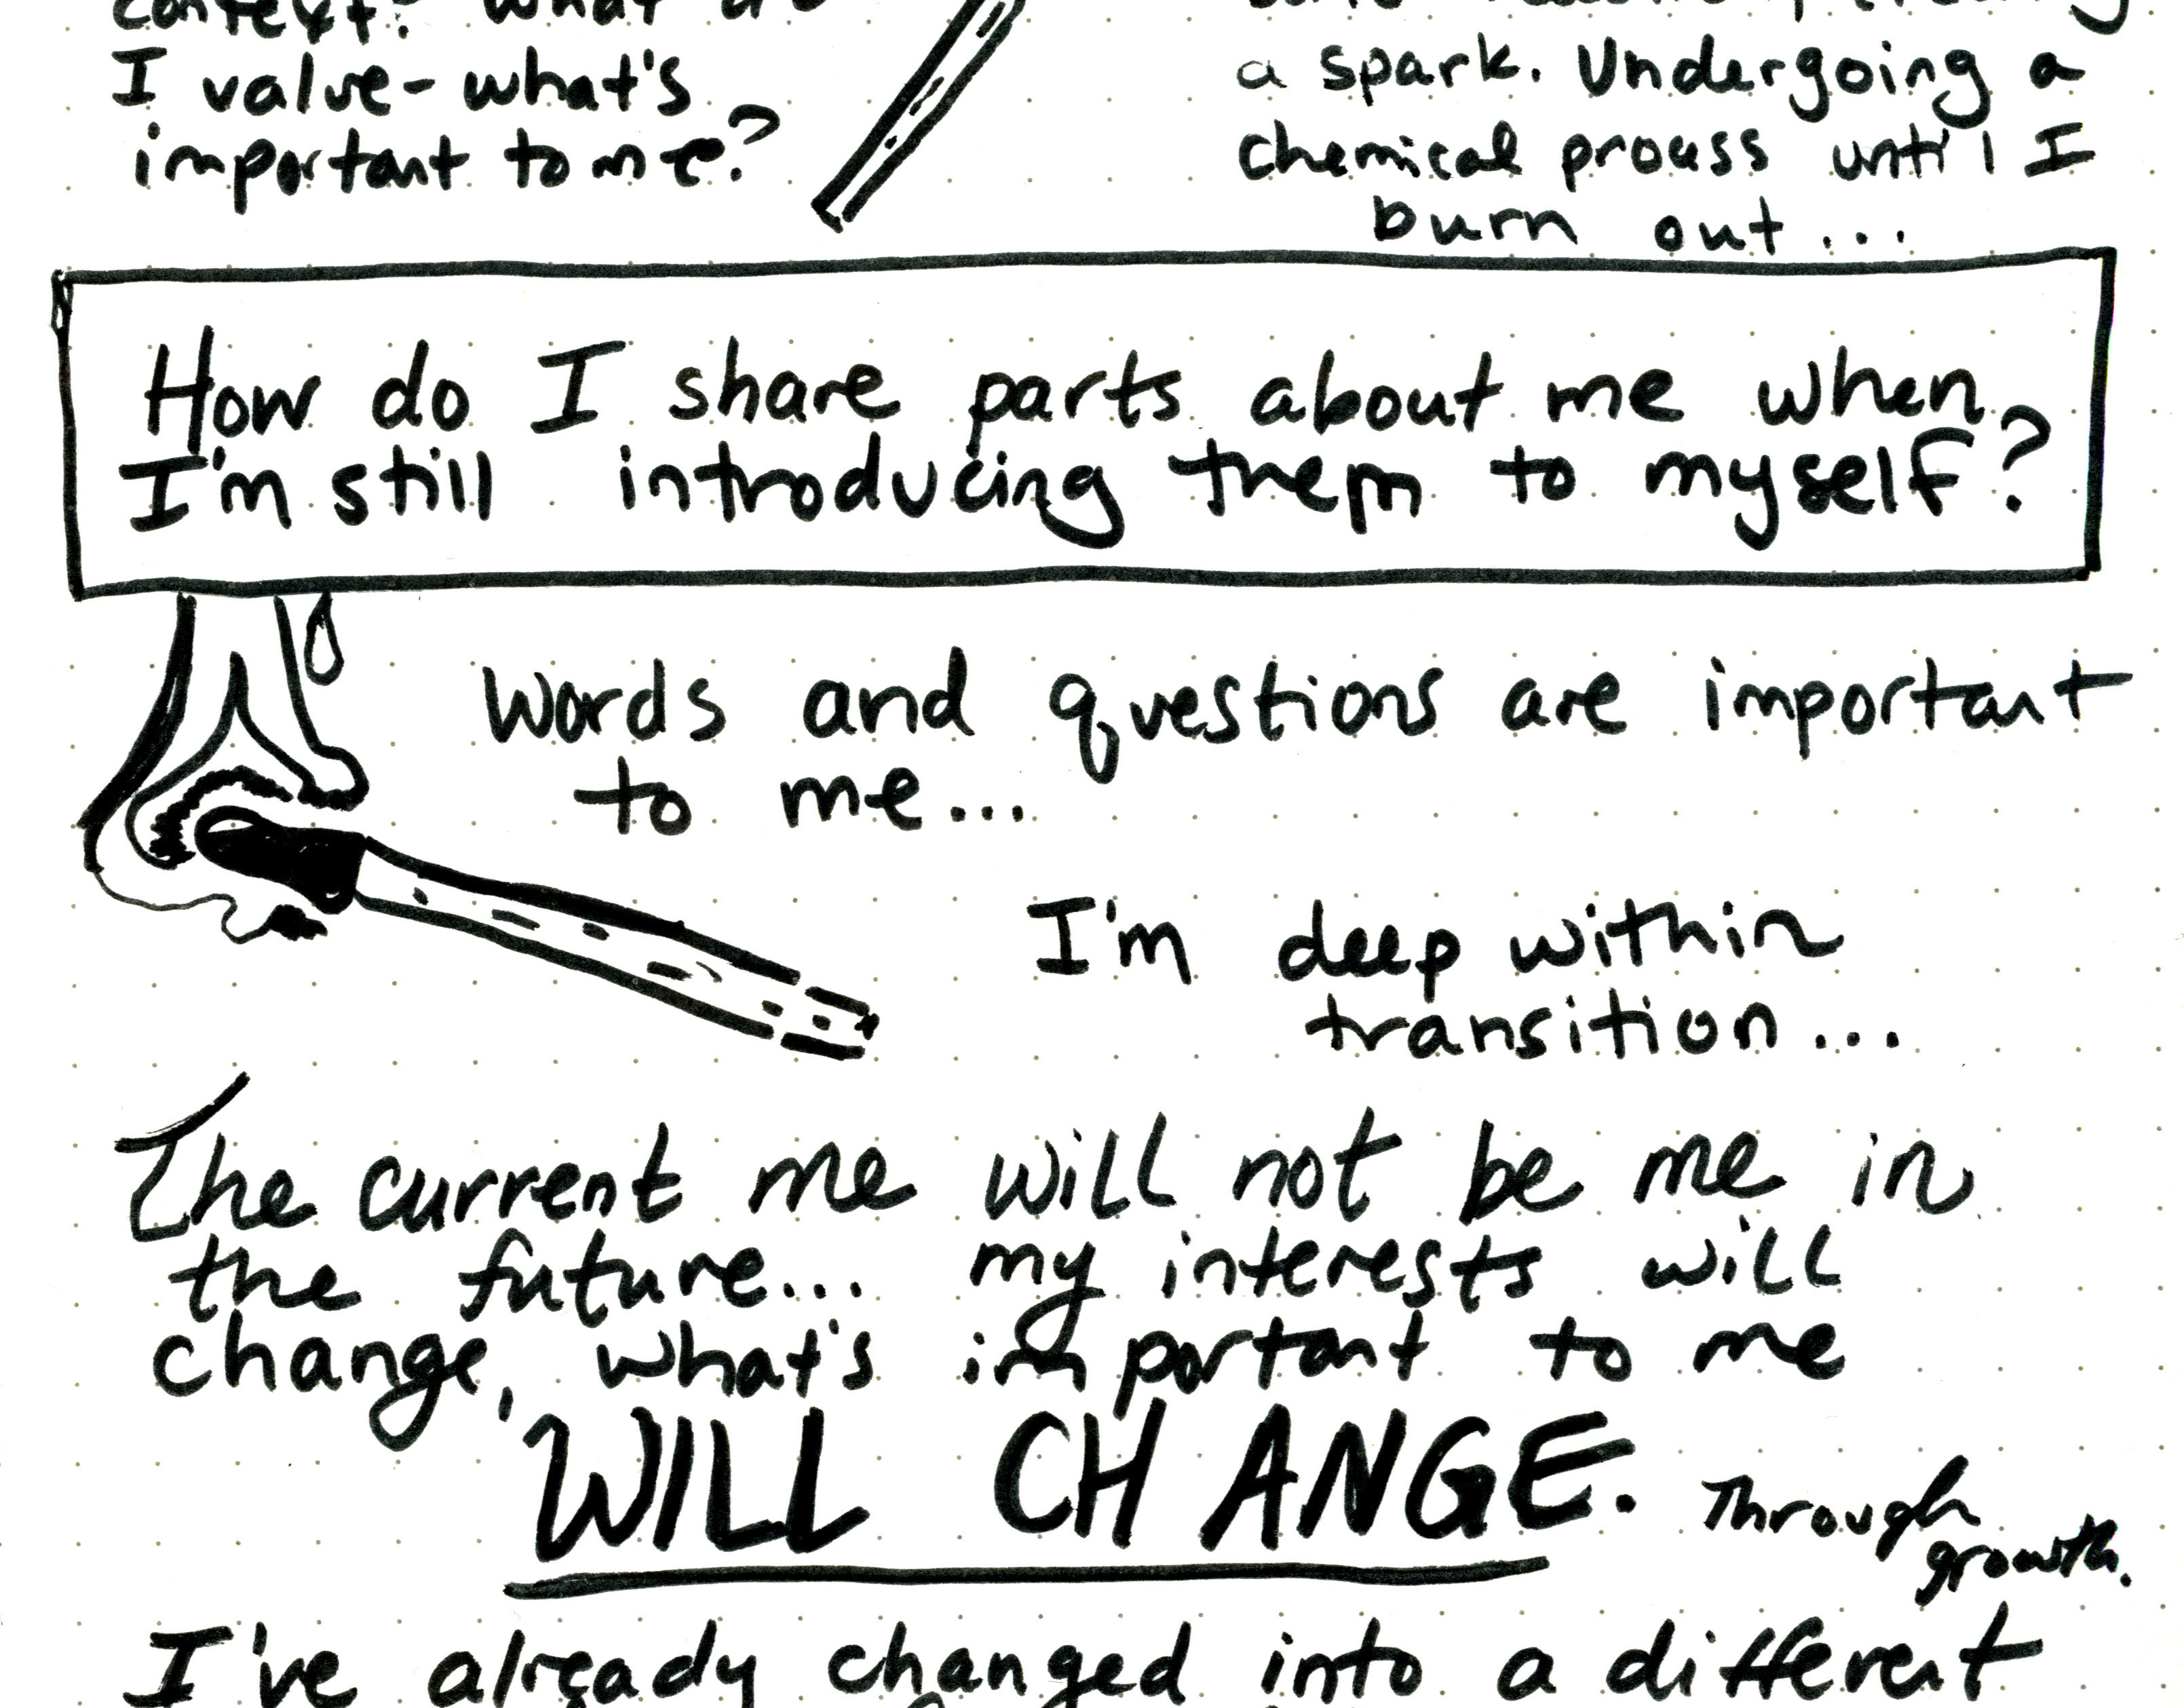 context? What do
I value - what's
important to me?
a spark. Undergoing a
chemical process until I
burn out...
How do I share parts about me when
I'm still introducing them to myself?
Words and questions are important
to me...
I'm deep within
transition...
The current me will not be me in
the future... my interests will
change, what's important to me
WILL CHANGE. Through
growth.
I've already changed into a different